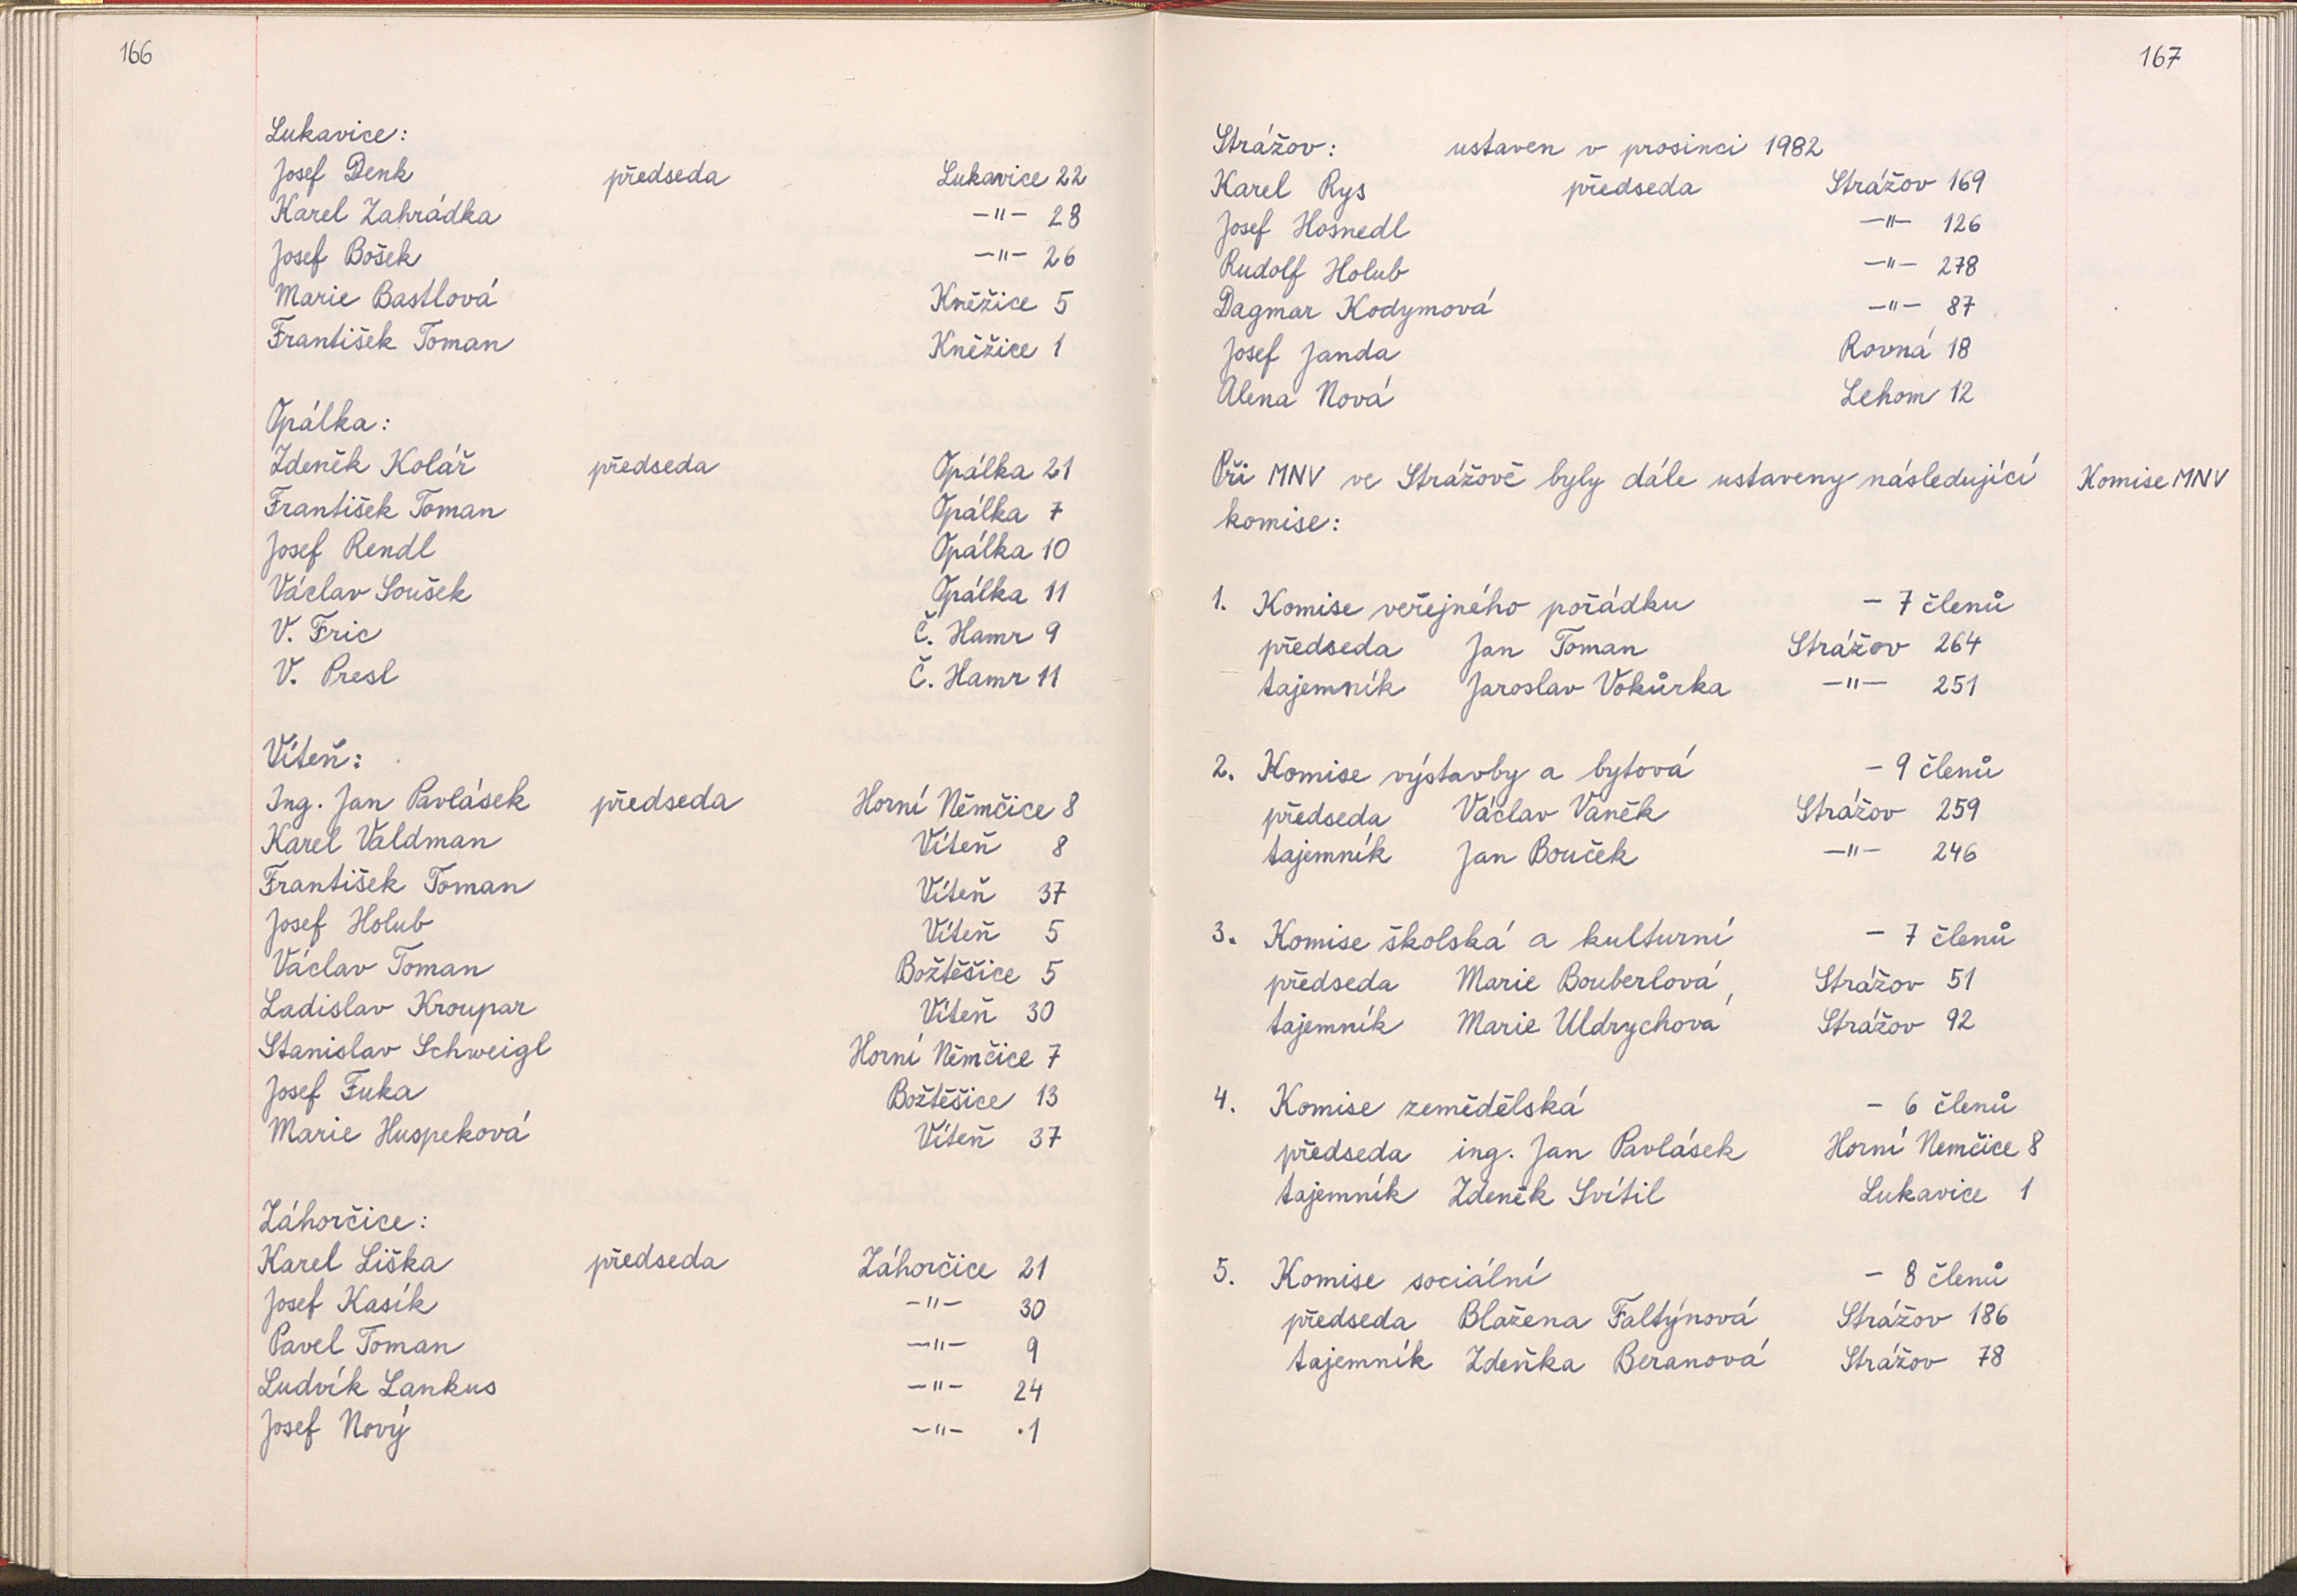 166
Lukavice:
Josef Denk předseda Lukavice 22
Karel Zahrádka -"- 28
Josef Bošek -"- 26
Marie Bastlová Kněžice 5
František Toman Kněžice 1
Opálka:
Zdeněk Kolář předseda Opálka 21
František Toman Opálka 7
Josef Rendl Opálka 10
Václav Soušek Opálka 11
V. Fric Č. Hamr 9
V. Presl Č. Hamr 11
Víteň:
Ing. Jan Pavlásek předseda Horní Němčice 8
Karel Valdman Víteň 8
František Toman Víteň 37
Josef Holub Víteň 5
Václav Toman Božtěšice 5
Ladislav Kroupar Víteň 30
Stanislav Schweigl Horní Němčice 7
Josef Fuka Božtěšice 13
Marie Huspeková Víteň 37
Záhorčice:
Karel Liška předseda Záhorčice 21
Josef Kasík -"- 30
Pavel Toman -"- 9
Ludvík Lankus -"- 24
Josef Nový -"- 1
167
Strážov: ustaven v prosinci 1982
Karel Rys předseda Strážov 169
Josef Hosnedl -"- 126
Rudolf Holub -"- 278
Dagmar Kodymová -"- 87
Josef Janda Rovná 18
Alena Nová Lehom 12
Při MNV ve Strážově byly dále ustaveny následující Komise MNV
komise:
1. Komise veřejného pořádku - 7 členů
předseda Jan Toman Strážov 264
tajemník Jaroslav Vokůrka -"- 251
2. Komise výstavby a bytová - 9 členů
předseda Václav Vaněk Strážov 259
tajemník Jan Bouček -"- 246
3. Komise školská a kulturní - 7 členů
předseda Marie Bouberlová Strážov 51
tajemník Marie Uldrychová Strážov 92
4. Komise zemědělská - 6 členů
předseda ing. Jan Pavlásek Horní Nemčice 8
tajemník Zdeněk Svítil Lukavice 1
5. Komise sociální - 8 členů
předseda Blažena Faltýnová Strážov 186
tajemník Zdeňka Beranová Strážov 78